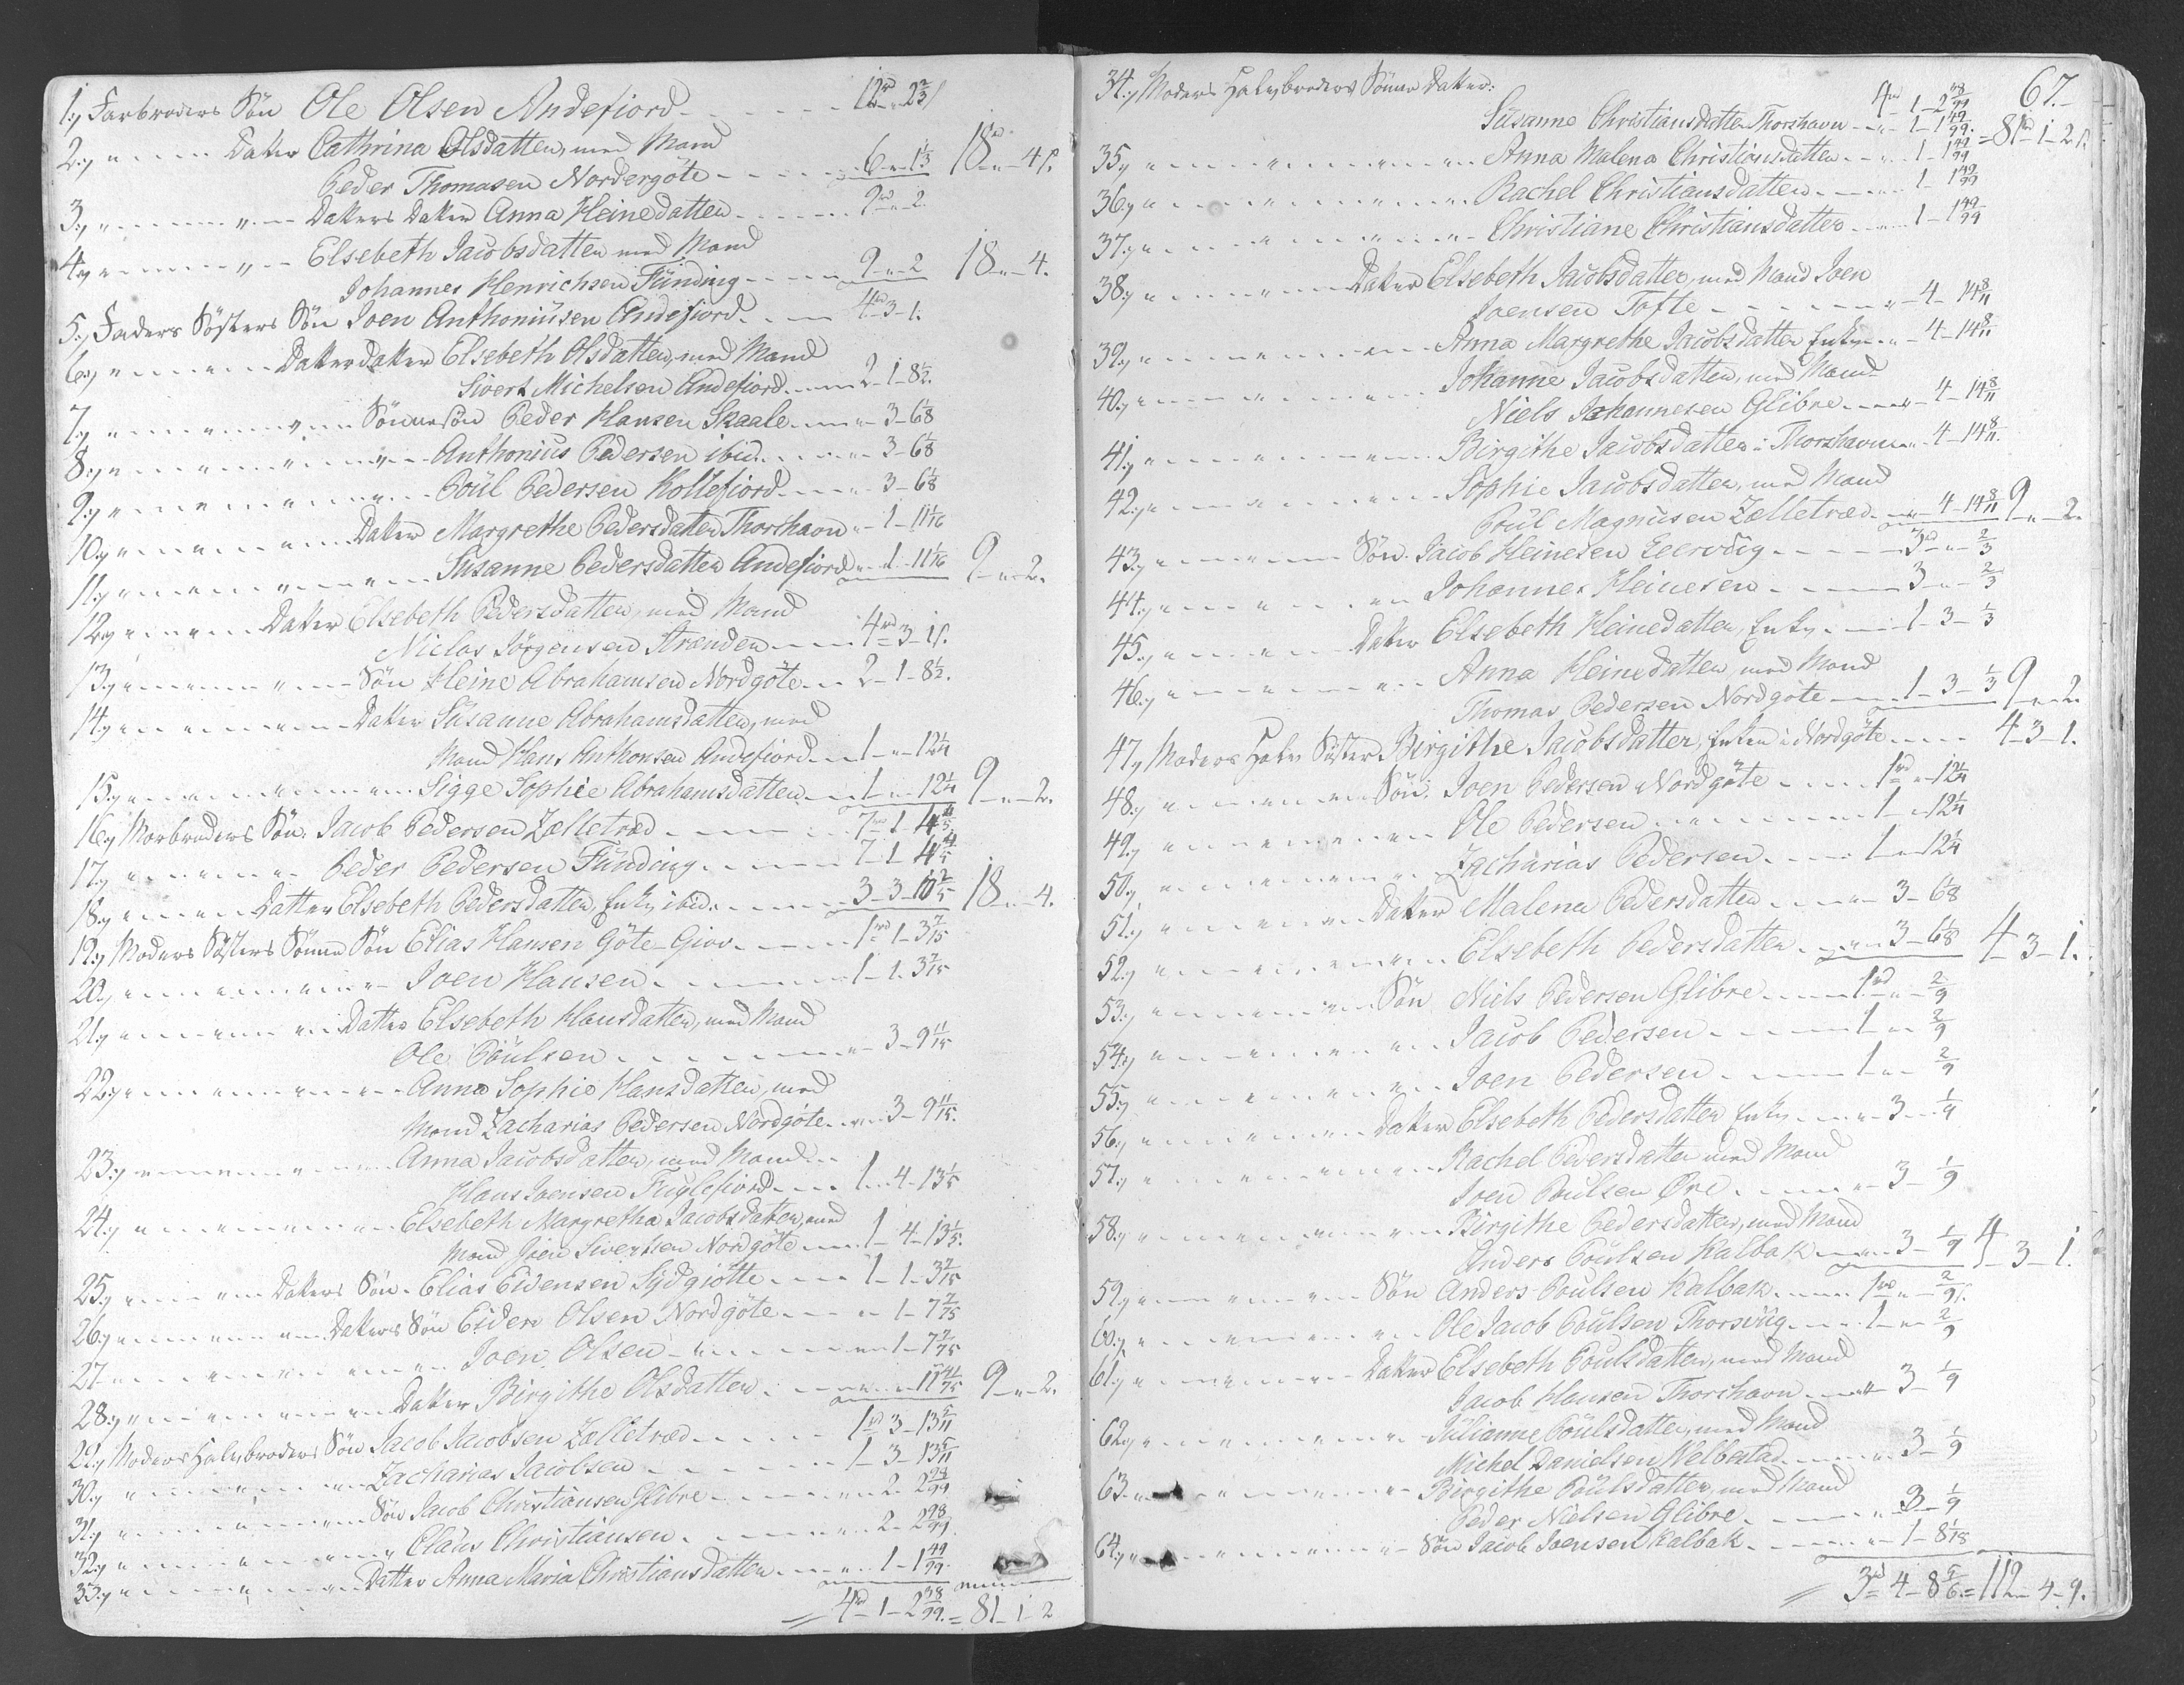 1.) Farbroders Søn Ole Olsen Andefiord - - - 12rd " 2 2/3 ſ
2.) " - - - - Datter Cathrina Olsdatter, med Mand
Peder Thomasen Nordergöte - - - - 6 " 1 1/3 18rd " 4 ſ.
3.) " - - - - " - Datters Datter Anna Heinedatter - - - - 9rd " 2.
4.) " - - - - " - Elsebeth Jacobsdatter med Mand
Johannes Henrichsen Funding - - - - 9 " 2 18 " 4.
5.) Faders Søsters Søn Joen Anthoniusen Andefiord - - - 4rd 3 - 1.
6.) " - - - - Datterdatter Elsebeth Olsdatter, med Mand
Sivert Michelsen Andefiord - - - 2 - 1 - 8 1/2.
7.) " - - - - " - Sönnesön Peder Hansen Skaale - - " 3 - 6 1/8
8.) " - - - - " - Anthonius Pedersen ibid. - - - " 3 - 6 1/8
9.) " - - - - " - Poul Pedersen Kollefiord - - - " 3 - 6 1/8
10.) " - - - - Datter Margrethe Pedersdatter Thorshavn " - 1 - 11 1/16
11.) " - - - - " - Susanne Pedersdatter Andefiord " - 1 - 11 1/16 9 " 2.
12.) " - - - - Datter Elsebeth Pedersdatter, med Mand
Niclas Jörgensen Stranden - - - 4rd 3 - 1 ſ.
13.) " - - - - " - Søn Heine Abrahamsen Nordgöte - - 2 - 1 - 8 1/2.
14.) " - - - - " - Datter Susanne Abrahamsdatter, med
Mand Hans Anthonsen Andefiord - - 1 - " - 12 1/4
15.) " - - - - " - Sigge Sophie Abrahamsdatter - - 1 - " - 12 1/4 9 " 2.
16.) Morbroders Søn. Jacob Pedersen Zelletræd - - - - 7rd 1 - 4 4/5
17.) " - - - - " Peder Pedersen Funding - - - - 7 - 1 - 4 4/5
18.) " - - - - Datter Elsebeth Pedersdatter, Enke ibid. - - - - 3 - 3 - 10 2/5 18 " 4.
19.) Moders Søsters Sønne Søn Elias Hansen Göte-Giov. - - - 1rd 1 - 3 7/15
20.) " - - - - " - Joen Hansen - - - - 1 - 1 - 3 7/15
21.) " - - - - " Datter Elsebeth Hansdatter, med Mand
Ole Poulsen - - - - " 3 - 9 11/15
22.) " - - - - " - Anna Sophie Hansdatter, med
Mand Zacharias Pedersen Nordgöte - - " 3 - 9 11/15.
23.) " - - - - " - Anna Jacobsdatter, med Mand
Hans Joensen Fuglefiord - - - 1 - 4 - 13 1/5
24.) " - - - - " - Elsebeth Margretha Jacobsdatter, med
Mand Joen Sivertsen Nordgöte - - - 1 - 4 - 13 1/5.
25.) " - - - - Datters Søn. Elias Eidensen Sydgiötte - - - 1 - 1 - 3 7/15
26.) " - - - - " Datters Søn Eiden Olsen Nordgöte - - - " 1 - 7 7/75
27 " - - - - " - Joen Olsen - - - - " 1 - 7 7/75
28.) " - - - - Datter Birgithe Olsdatter - - - - " - 11 41/75 9 " 2.
29.) Moders Halvbroders Søn Jacob Jacobsen Zelletræd - - - - 1rd 3 - 13 5/11
30.) " - - - - " - Zacharias Jacobsen - - - - 1 - 3 - 13 5/11
31.) " - - - - " Søn Jacob Christiansen Glibre - - - - " 2 - 2 98/99
32.) " - - - - " Claus Christiansen - - - - " 2 - 2 98/99.
33.) " - - - - " - Datter Anna Maria Christiansdatter - - - " 1 - 1 49/99.
4rd 1 - 2 38/99. = 81 - 1 - 2
67.
34.) Moders Halvbroders Sønne Datter: 4rd 1 - 2 38/99
Susanne Christiansdatter Thorshavn - - " 1 - 1 49/99. = 81rd 1 - 2 ſ.
35.) " - - - - " - Anna Malena Christiansdatter - - " 1 - 1 49/99
36.) " - - - - " - Rachel Christiansdatter - - - " 1 - 1 49/99
37.) " - - - - " - Christiane Christiansdatter - - - " 1 - 1 49/99
38.) " - - - - Datter Elsebeth Jacobsdatter, med Mand Joen
Joensen Tofte - - - - " 4 - 14 8/11
39.) " - - - - " - Anna Margrethe Jacobsdatter Enke - - " - 4 - 14 8/11
40.) " - - - - " - Johanne Jacobsdatter, med Mand
Niels Johannesen Glibre - - - " 4 - 14 8/11
41.) " - - - - " - Birgithe Jacobsdatter i Thorshavn - - " 4 - 14 8/11.
42.) " - - - - " - Sophie Jacobsdatter, med Mand
Poul Magnusen Zælletræd - - " 4 - 14 8/11 9 " 2.
43.) " - - - - Søn. Jacob Heinesen Leervig - - - - 3rd " 2/3
44.) " - - - - " Johannes Heinesen - - - - 3 - " - 2/3
45.) " - - - - Datter Elsebeth Heinedatter, Enke - - - 1 - 3 - 1/3
46.) " - - - - " - Anna Heinedatter, med Mand
Thomas Pedersen Nordgöte - - - 1 - 3 - 1/3 9 " 2.
47.) Moders Halv Søster Birgithe Jacobsdatter, Enke i Nordgöte - - - - 4 - 3 - 1.
48.) " - - - - " - Søn. Joen Pedersen Nordgöte - - - 1rd " 12 1/4
49.) " - - - - " - Ole Pedersen - - - - 1 - " 12 1/4
50.) " - - - - " - Zacharias Pedersen - - - - 1 - " 12 1/4
51.) " - - - - " Datter Malena Pedersdatter - - - " 3 - 6 1/8
52.) " - - - - " - Elsebeth Pedersdatter - - " 3 - 6 1/8 4 - 3 - 1.
53.) " - - - - " - Søn Niels Pedersen Glibre - - - 1rd " 2/9
54.) " - - - - " - Jacob Pedersen - - - - 1 - " 2/9
55.) " - - - - " - Joen Pedersen - - - - 1 - " 2/9
56.) " - - - - " - Datter Elsebeth Pedersdatter Enke - - - " 3 - 1/9
57.) " - - - - " - Rachel Pedersdatter med Mand
Joen Poulsen Øre - - - - " 3 - 1/9
58.) " - - - - " - Birgithe Pedersdatter, med Mand
Anders Poulsen Kalbak - - - " 3 - 1/9 4 - 3 - 1.
59.) " - - - - " - Søn Anders Poulsen Kalbak - - - 1rd " 2/9 ſ.
60.) " - - - - " - Ole Jacob Poulsen Thorsvig - - - 1 - " 2/9
61.) " - - - - " - Datter Elsebeth Poulsdatter, med Mand
Jacob Hansen Thorshavn - - - " 3 - 1/9
62.) " - - - - " - Julianne Poulsdatter, med Mand
Michel Danielsen Welbestad - - - " 3 - 1/9
63 " - - - - " - Birgithe Poulsdatter, med Mand
Peder Nielsen Glibre - - - - " 3 - 1/9
64.) " - - - - " - Søn Jacob Joensen Kalbak - - - - " 1 - 8 1/18
3rd 4 - 8 5/6. = 112 - 4 - 9.